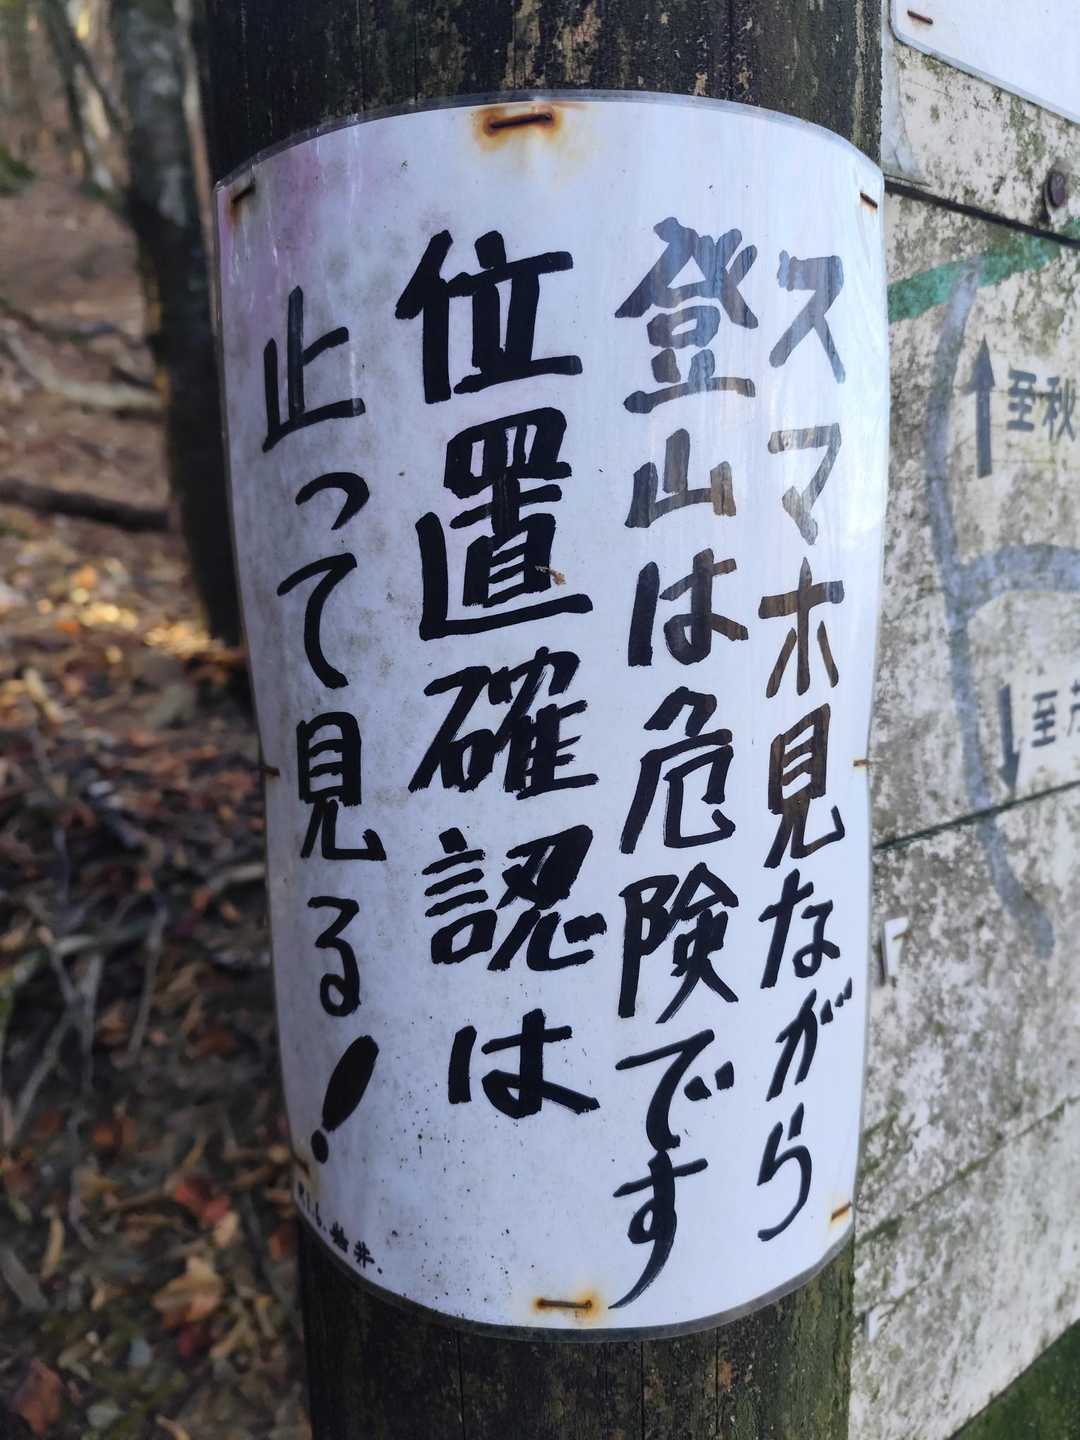 スマホ見ながら
登山は危険です
位置確認は
止って見る!
R1.6.
至秋
至